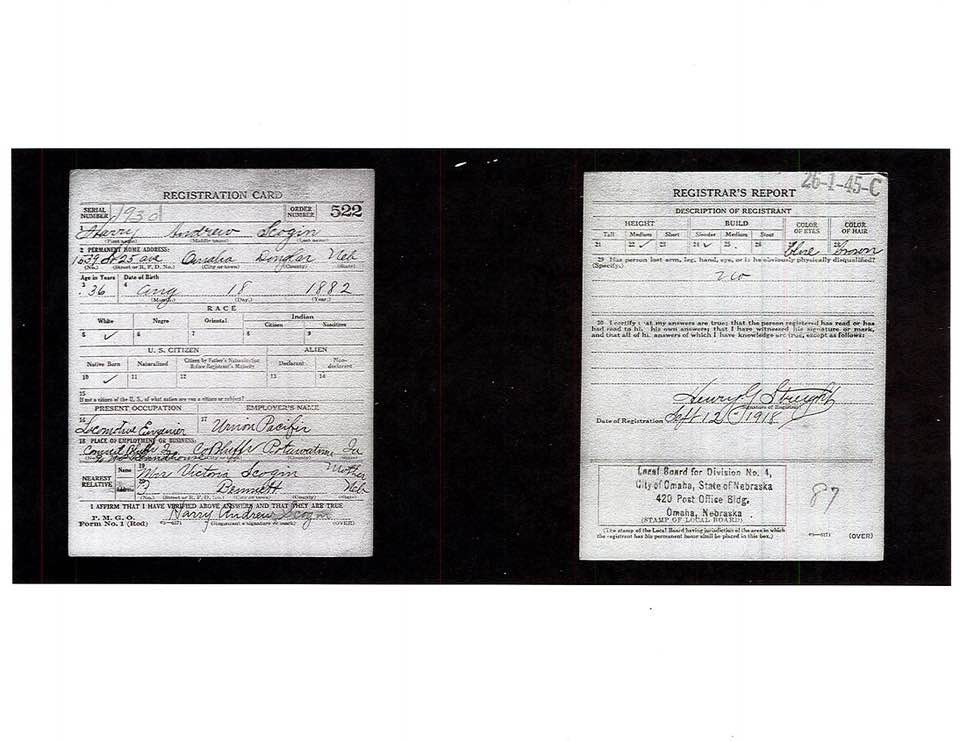 REGISTRATION CARD
SERIAL NUMBER 1930 ORDER NUMBER 522
Harry Andrew Scogin
(First name) (Middle name) (Last name)
2 PERMANENT HOME ADDRESS:
1639 So 25 ave Omaha Douglas Neb
(No.) (Street or R. F. D. No.) (City or town) (County) (State)
Age in Years Date of Birth
3 36 4 Aug 18 1882
(Month.) (Day.) (Year.)
RACE
White Negro Oriental Indian
Citizen Noncitizen
5 ✓ 6 7 8 9
U. S. CITIZEN ALIEN
Native Born Naturalized Citizen by Father's Naturalization Before Registrant's Majority Declarant Non-declarant
10 ✓ 11 12 13 14
15
If not a citizen of the U. S., of what nation are you a citizen or subject?
PRESENT OCCUPATION EMPLOYER'S NAME
16 Locomotive Engenier 17 Union Pacific
18 PLACE OF EMPLOYMENT OR BUSINESS:
Council Bluffs Ia Co Bluffs Ia
(County) (State)
NEAREST RELATIVE Name 19 Mrs Victoria Scogin Mother
Address Bennett Neb
(No.) (Street or R. F. D. No.) (City or town) (County) (State)
I AFFIRM THAT I HAVE VERIFIED ABOVE ANSWERS AND THAT THEY ARE TRUE
P. M. G. O.
Form No. 1 (Red) Harry Andrew Scogin
(Registrant's signature or mark) (OVER)
26-1-45-C
REGISTRAR'S REPORT
DESCRIPTION OF REGISTRANT
HEIGHT BUILD COLOR OF EYES COLOR OF HAIR
Tall Medium Short Slender Medium Stout
21 22 ✓ 23 24 ✓ 25 26 27 Blue 28 brown
29 Has person lost arm, leg, hand, eye, or is he obviously physically disqualified?
(Specify.)
no
30 I certify that my answers are true; that the person registered has read or has
had read to him his own answers; that I have witnessed his signature or mark,
and that all of his answers of which I have knowledge are true, except as follows:
Henry G Streight
(Signature of Registrar)
Date of Registration Sept 12 1918
Local Board for Division No. 4,
City of Omaha, State of Nebraska
420 Post Office Bldg.
Omaha, Nebraska
(STAMP OF LOCAL BOARD)
87
(The stamp of the Local Board having jurisdiction of the area in which
the registrant has his permanent home shall be placed in this box.)
(OVER)